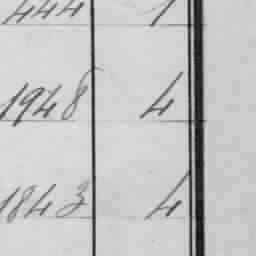 444 1
1948 4
1843 4